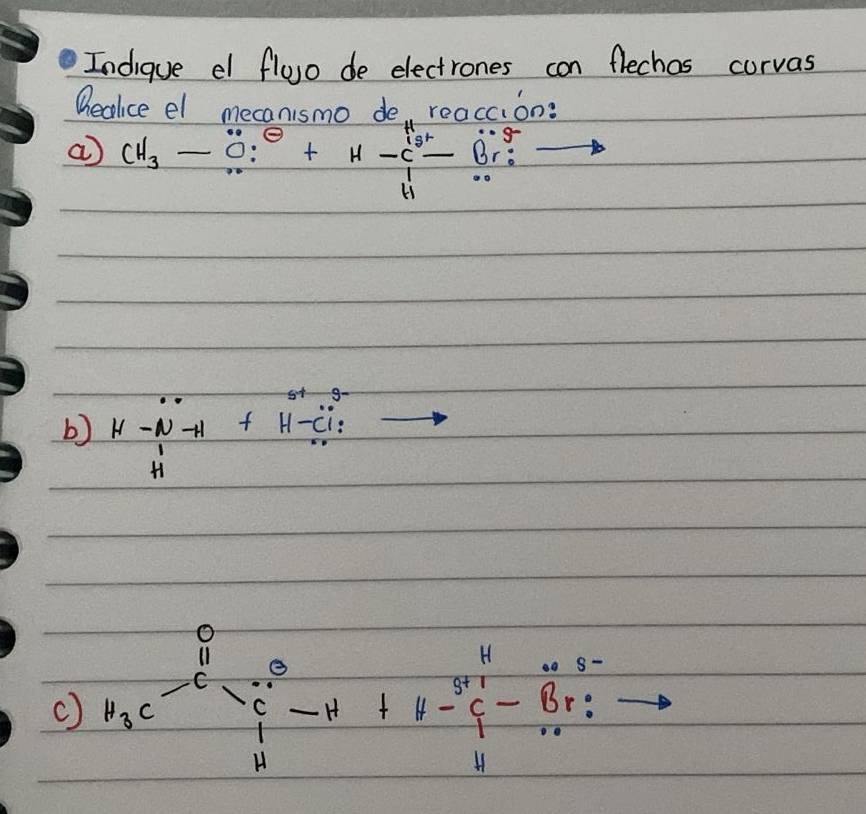 Indique el flujo de electrones con flechas curvas
Realice el mecanismo de reacción:
H
a) CH₃ — Ö:⊖ + H — C δ+ — Br: δ- →
H
δ+ δ-
b) H - N̈ - H + H - Cl: →
H
O
||
H
c) H₃C — C \ C̈ ⊖ — H + H - C δ+ - Br: δ- →
H H